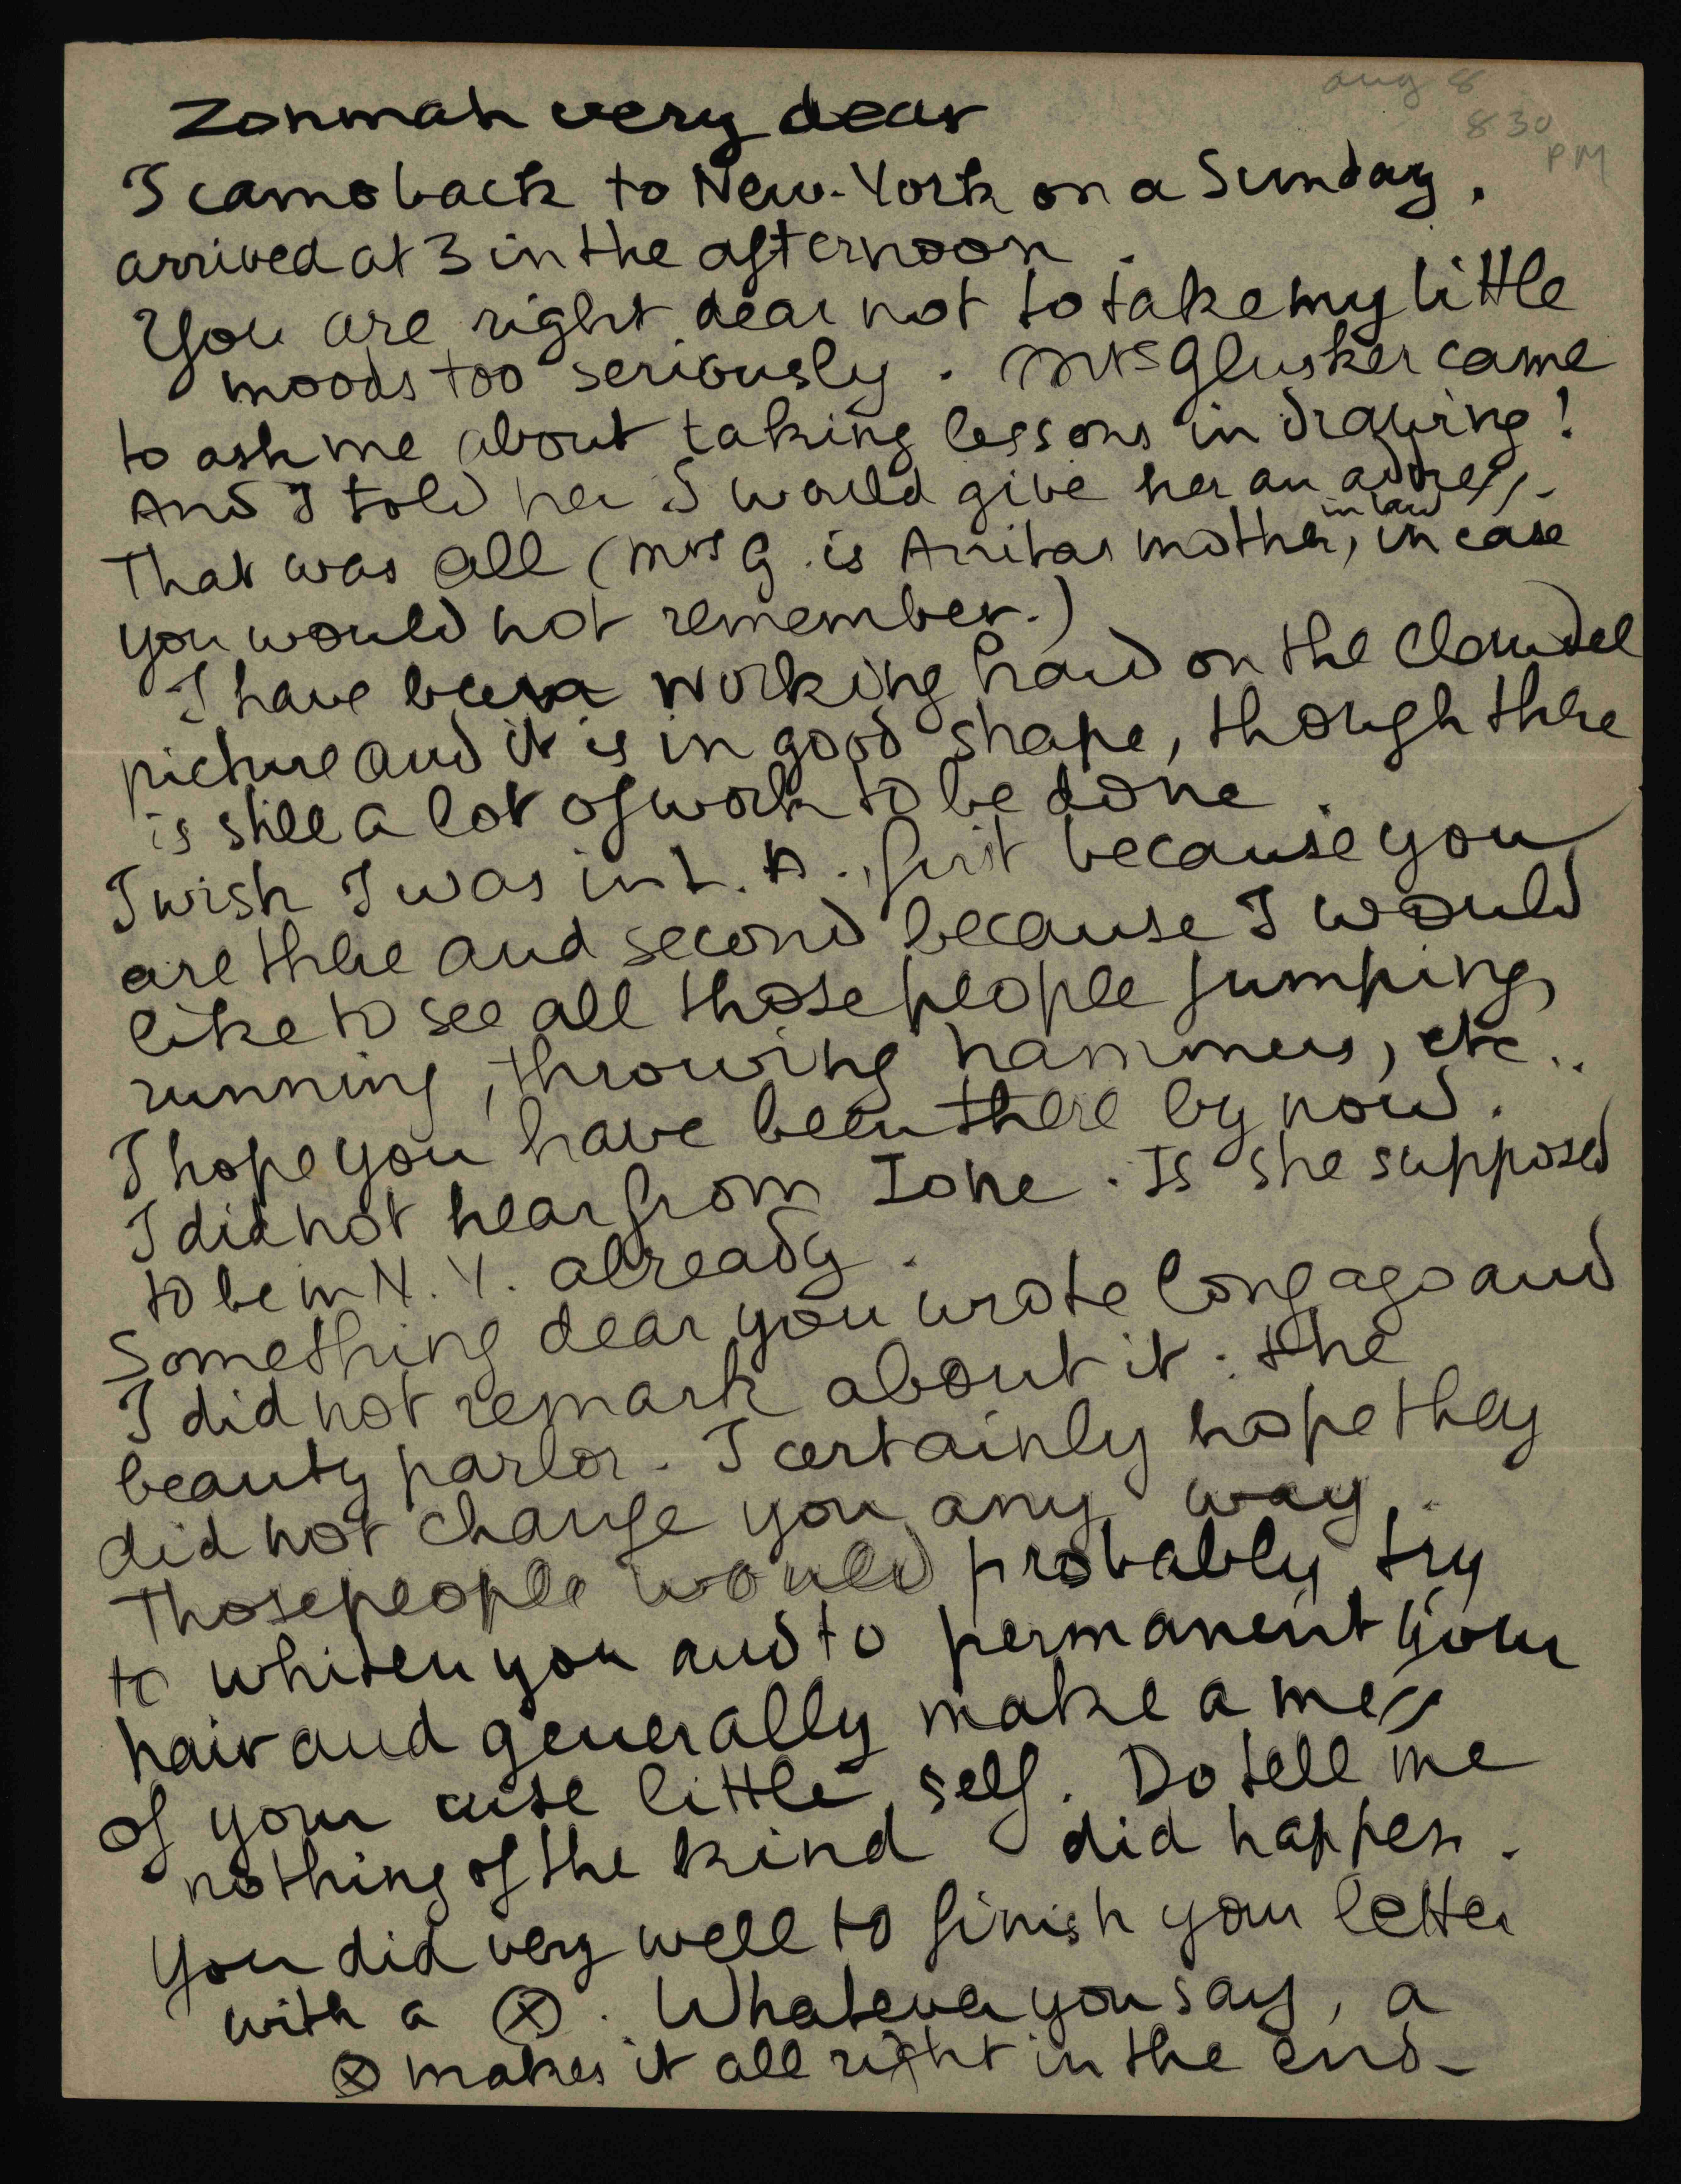 aug 8
8 30
PM
Zohmah very dear
I came back to New-York on a Sunday.
arrived at 3 in the afternoon.
You are right dear not to take my little
moods too seriously. Mrs Glusker came
to ask me about taking lessons in drawing!
And I told her I would give her an address.
That was all (Mrs G. is Anitas mother, in law in case
you would not remember.)
I have been working hard on the Claudel
picture and it is in good shape, though there
is still a lot of work to be done.
I wish I was in L.A., first because you
are there and second because I would
like to see all those people jumping,
running, throwing hammers, etc..
I hope you have been there by now.
I did not hear from Ione. Is she supposed
to be in N.Y. already.
Something dear you wrote long ago and
I did not remark about it: the
beauty parlor. I certainly hope they
did not change you any way.
Those people would probably try
to whiten you and to permanent your
hair and generally make a mess
of your cute little self. Do tell me
nothing of the kind did happen.
You did very well to finish your letter
with a ⓧ. Whatever you say, a
ⓧ makes it all right in the end-